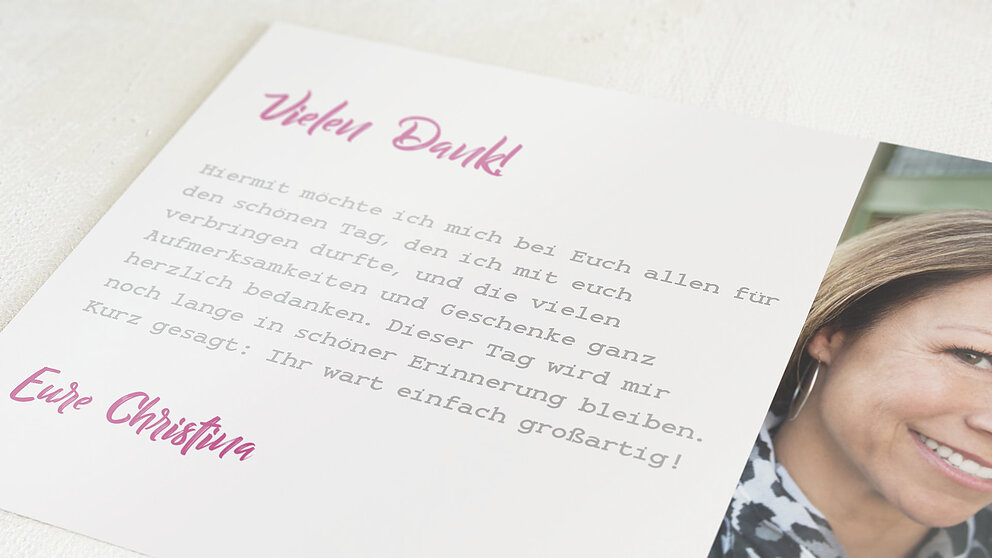 Vielen Dank!
Hiermit möchte ich mich bei Euch allen für
den schönen Tag, den ich mit euch
verbringen durfte, und die vielen
Aufmerksamkeiten und Geschenke ganz
herzlich bedanken. Dieser Tag wird mir
noch lange in schöner Erinnerung bleiben.
Kurz gesagt: Ihr wart einfach großartig!
Eure Christina